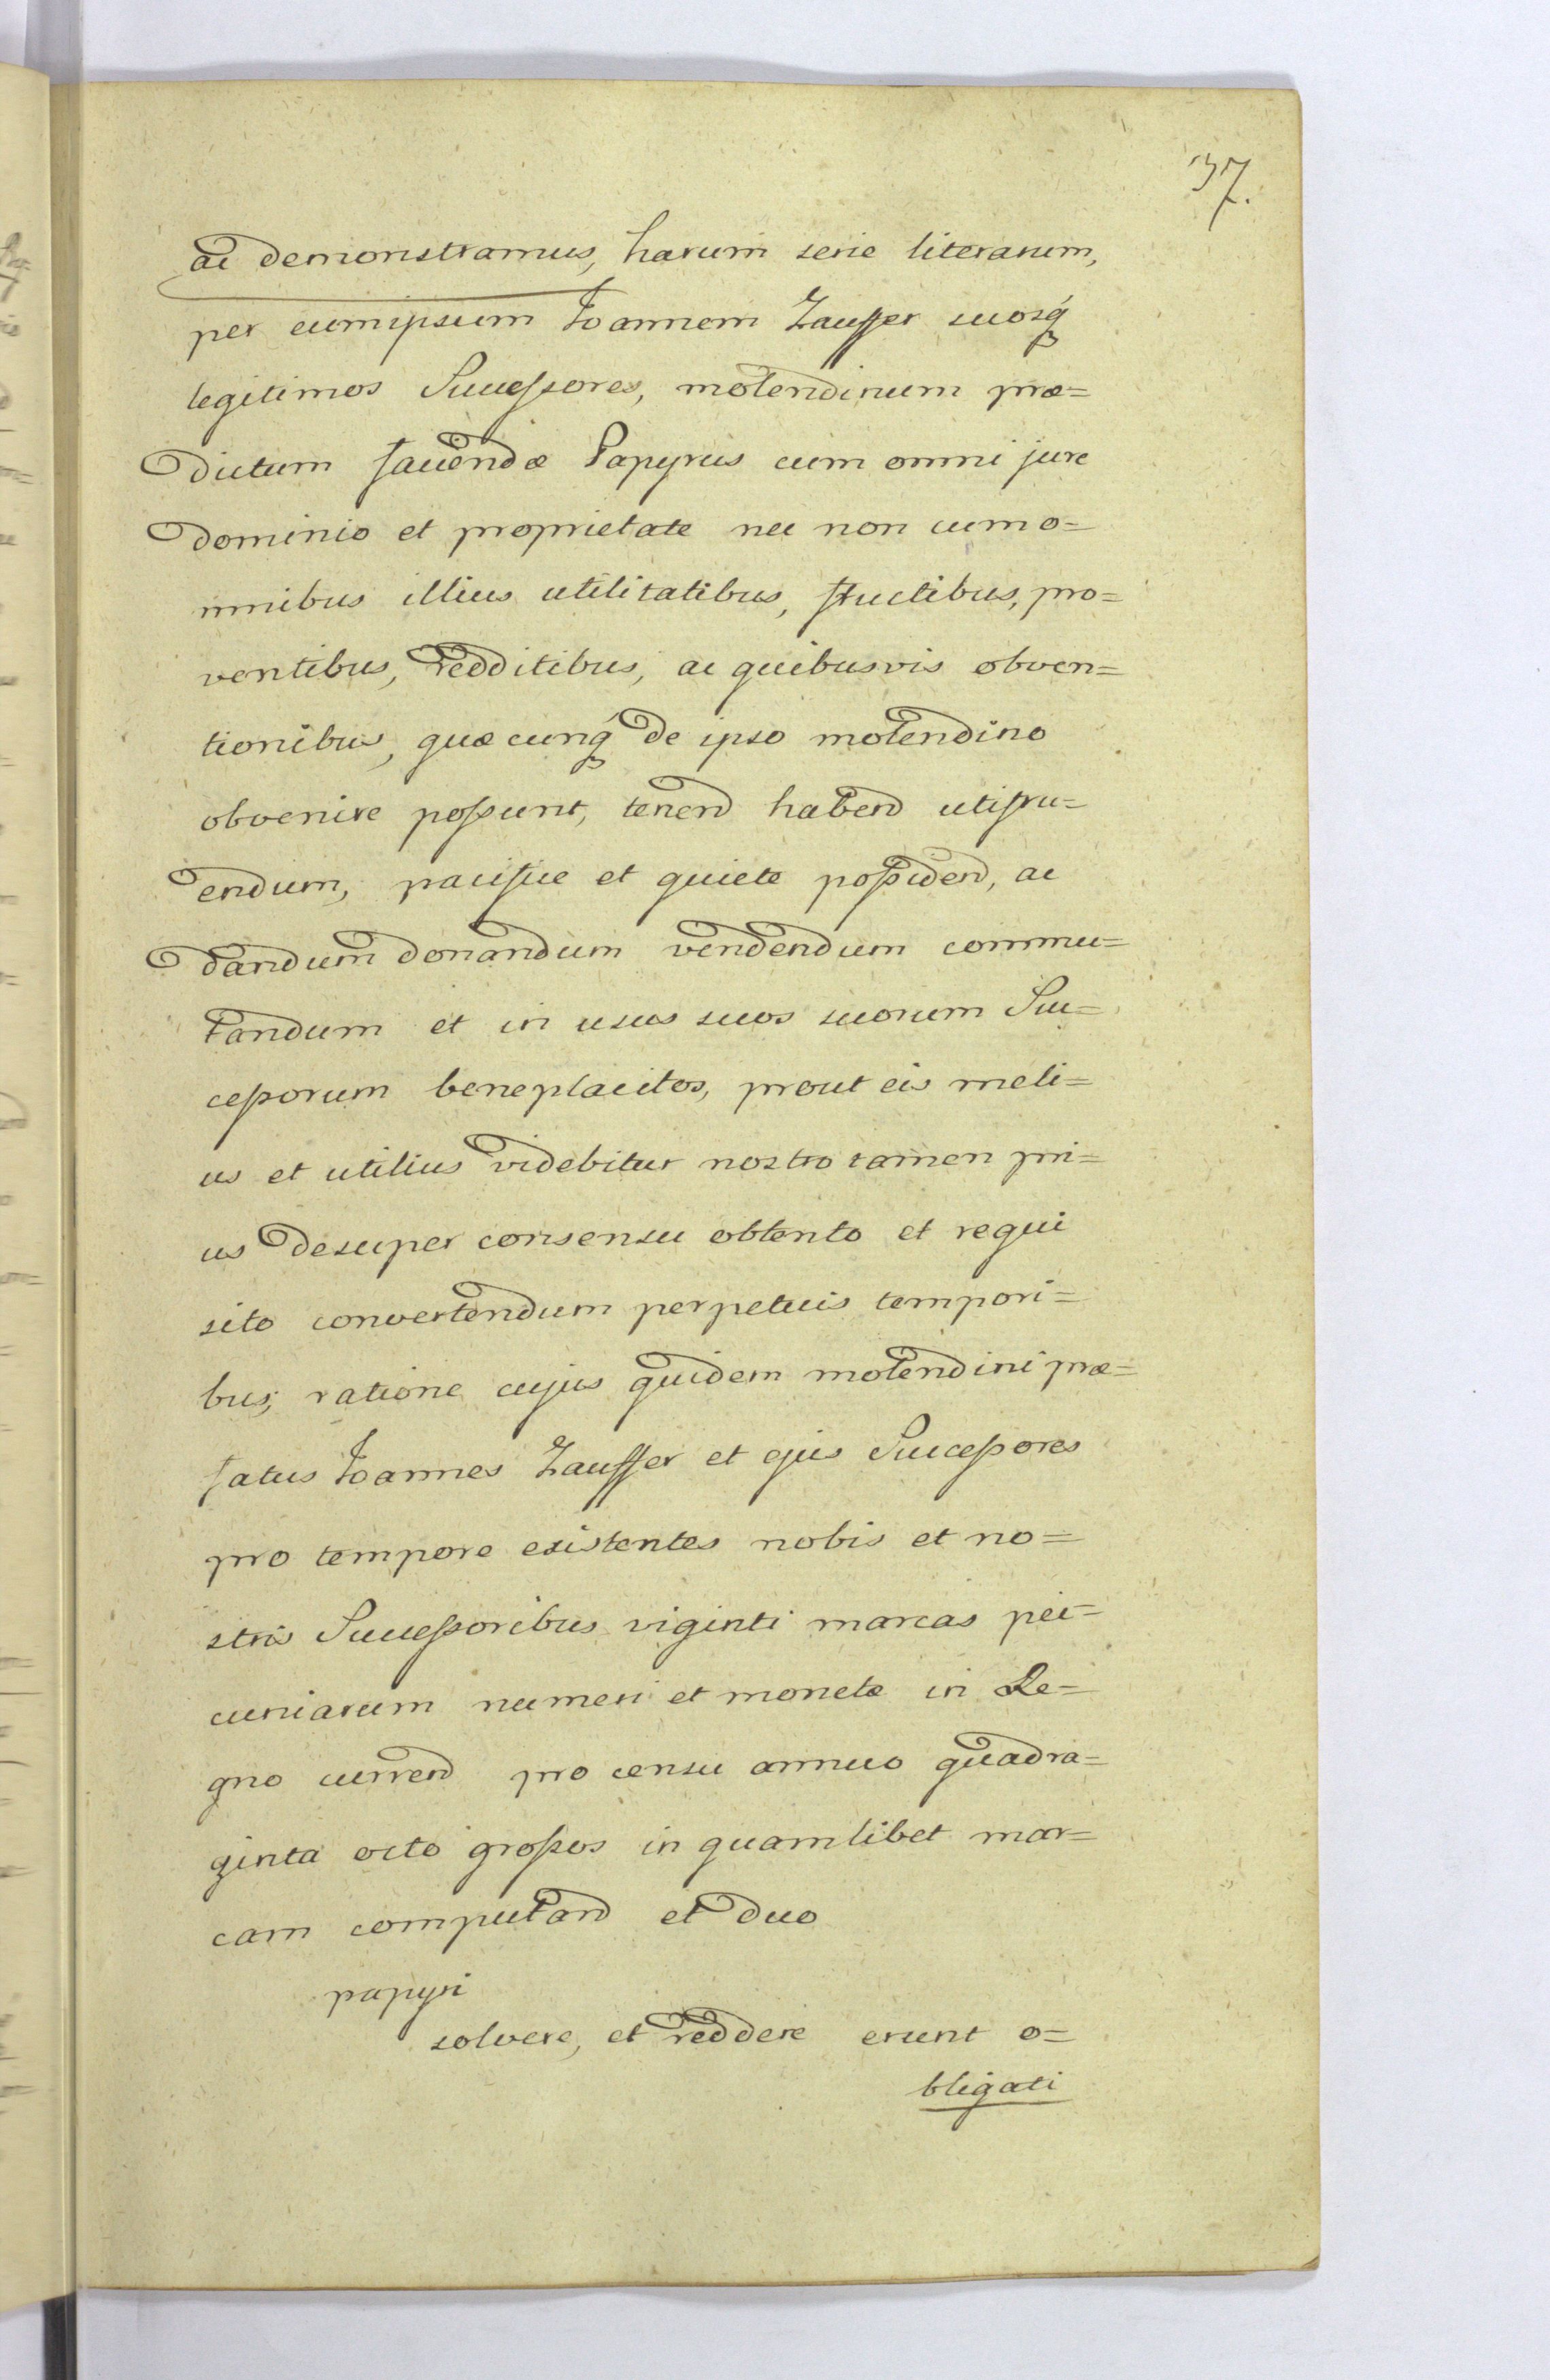 37.
ac demonstramus, harum serie literarum,
per eumipsum Joannem Zauffer suosq́
legitimos Successores, molendinum præ=
dictum faciendæ Papyrus cum omni jure
dominio et proprietate nec non cum o=
mnibus illius utilitatibus, fructibus, pro=
ventibus, redditibus, ac quibusvis obven=
tionibus, quæcunq́ de ipso molendino
obvenire possunt, tenend habend utifru=
endum, pacifice et quiete possidend, ac
dandum donandum vendendum commu=
tandum et in usus suos suorum Suc=
cessorum beneplacitos, prout eis meli=
us et utilius videbitur nostro tamen pri=
us desuper consensu obtento et requi
sito convertendum perpetuis tempori=
bus; ratione cujus quidem molendini præ=
fatus Joannes Zauffer et ejus Successores
pro tempore existentes nobis et no=
stris Successoribus viginti marcas pec=
cuniarum numeri et monetæ in Re=
gno currend pro censu annuo quadra=
ginta octo grossos in quamlibet mar=
cam computand et duo
papyri
solvere, et reddere erunt o=
bligati